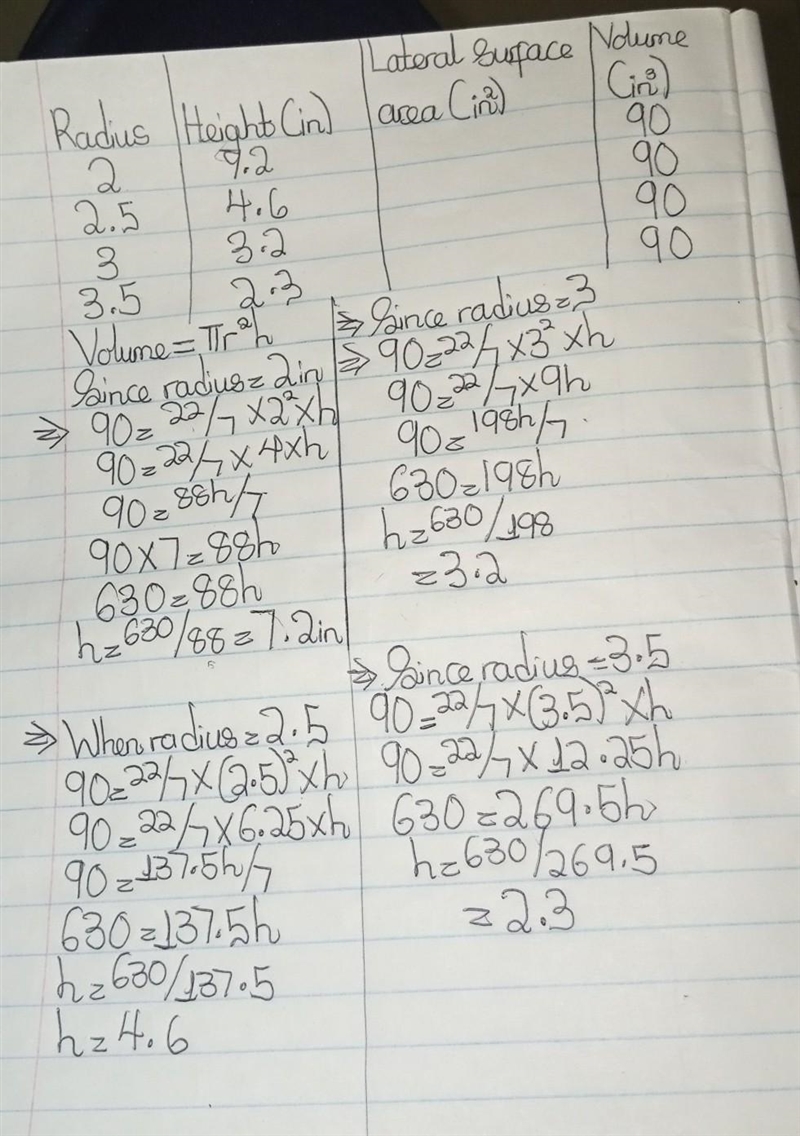 Radius | Height (in) | Lateral Surface area (in²) | Volume (in³)
2 | 7.2 | | 90
2.5 | 4.6 | | 90
3 | 3.2 | | 90
3.5 | 2.3 | | 90
Volume = πr²h
Since radius = 2in
⇒ 90 = 22/7 × 2² × h
90 = 22/7 × 4 × h
90 = 88h/7
90 × 7 = 88h
630 = 88h
h = 630/88 = 7.2in
⇒ When radius = 2.5
90 = 22/7 × (2.5)² × h
90 = 22/7 × 6.25 × h
90 = 137.5h/7
630 = 137.5h
h = 630/137.5
h = 4.6
⇒ Since radius = 3
⇒ 90 = 22/7 × 3² × h
90 = 22/7 × 9h
90 = 198h/7
630 = 198h
h = 630/198
= 3.2
⇒ Since radius = 3.5
90 = 22/7 × (3.5)² × h
90 = 22/7 × 12.25h
630 = 269.5h
h = 630/269.5
= 2.3